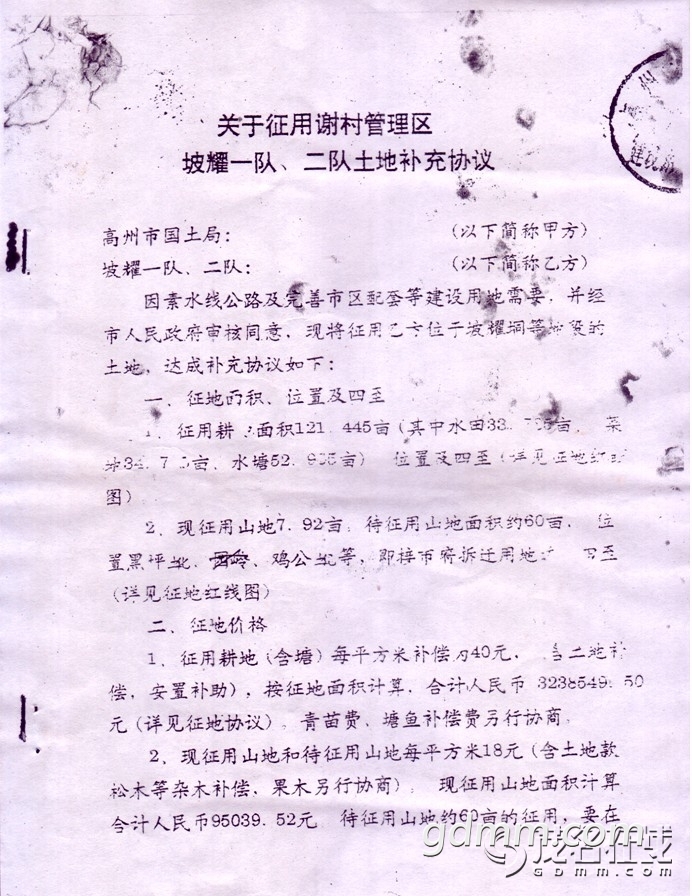 关于征用谢村管理区
坡耀一队、二队土地补充协议
高州市国土局: (以下简称甲方)
坡耀一队、二队: (以下简称乙方)
因素水线公路及完善市区配套等建设用地需要,并经
市人民政府审核同意,现将征用乙方位于坡耀垌等地段的
土地,达成补充协议如下:
一、征地面积、位置及四至
1、征用耕 面积121.445亩(其中水田33. 亩, 菜
34.7 5亩、水塘52. 亩) 位置及四至(详见征地红
图)
2、现征用山地7.92亩,待征用山地面积约60亩, 位
置黑坪 、 、鸡公 等, 拆迁用地 四至
(详见征地红线图)
二、征地价格
1、征用耕地(含塘)每平方米补偿为40元, 含土地补
偿,安置补助),按征地面积计算,合计人民币 3238549.50
元(详见征地协议)。青苗费、塘鱼补偿费另行协商。
2、现征用山地和待征用山地每平方米18元(含土地款
松木等杂木补偿,果木另行协商)。现征用山地面积计算
合计人民币95039.52元 待征用山地约60亩的征用,要在
gdmm.com
茂名在线
GDMM.COM